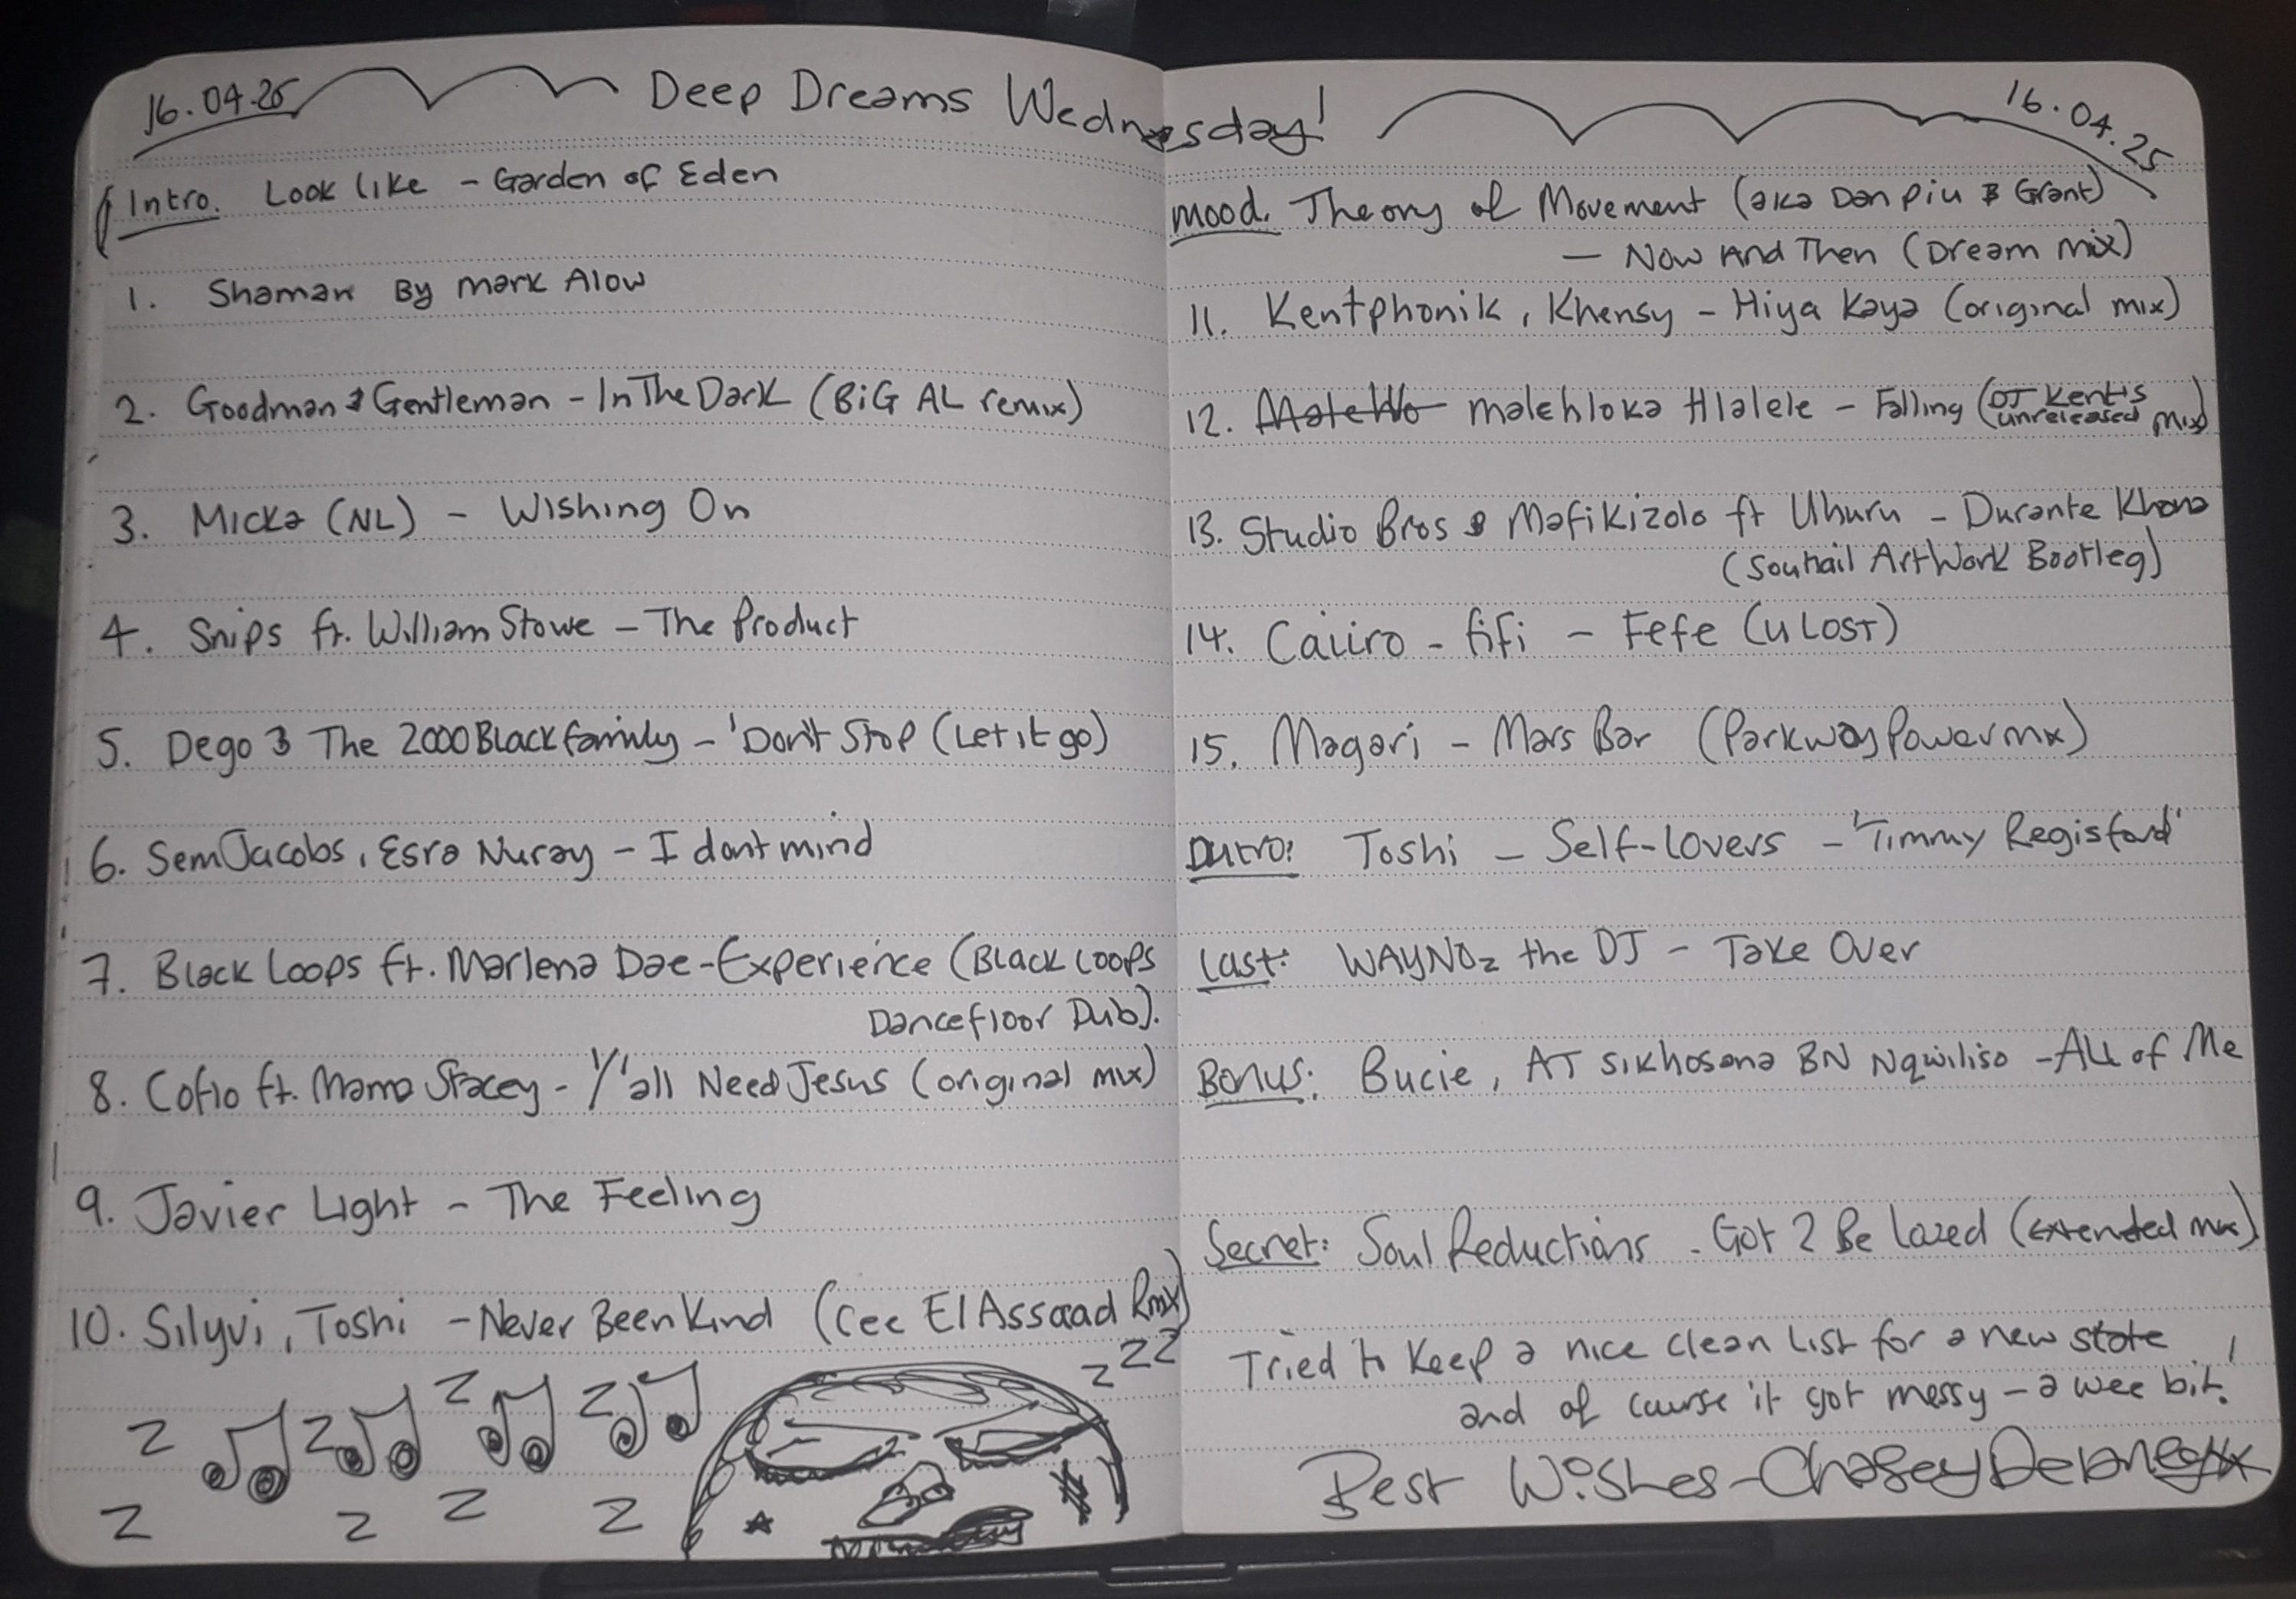 16.04.25 Deep Dreams Wednesday! 16.04.25
Intro. Look like - Garden of Eden
1. Shaman By Mark Alow
2. Goodman & Gentleman - In The Dark (BiG AL remix)
3. Micka (NL) - Wishing On
4. Snips ft. William Stowe - The Product
5. Dego & The 2000Black family - 'Don't Stop (Let it go)
6. Sem Jacobs, Esra Nuray - I dont mind
7. Black Loops ft. Marlena Dae - Experience (Black Loops
Dancefloor Dub).
8. Cofio ft. Mama Stacey - Y'all Need Jesus (original mix)
9. Javier Light - The Feeling
10. Silyvi, Toshi - Never Been Kind (Cee El Assaad Rmx)
z z z z z z z
z z z z
mood. Theory of Movement (aka Dan Piu & Grant)
- Now And Then (Dream mix)
11. Kentphonik, Khensy - Hiya Kaya (original mix)
12. malehloka Hlalele - Falling (DJ Kent's unreleased Mix)
13. Studio Bros & Mafikizolo ft Uhuru - Durante Khona
(Souhail ArtWork Bootleg)
14. Caiiro - fifi - Fefe (U LOST)
15. Magari - Mars Bar (Parkway Power mx)
Outro: Toshi - Self-lovers - 'Timmy Regisford'
Last: WAYNOz the DJ - Take Over
Bonus: Bucie, AT Sikhosana BN Nqwiliso - All of Me
Secret: Soul Reductions - Got 2 Be Loved (extended mx)
Tried to keep a nice clean list for a new state
and of course it got messy - a wee bit!
Best Wishes - Chasey Delaney